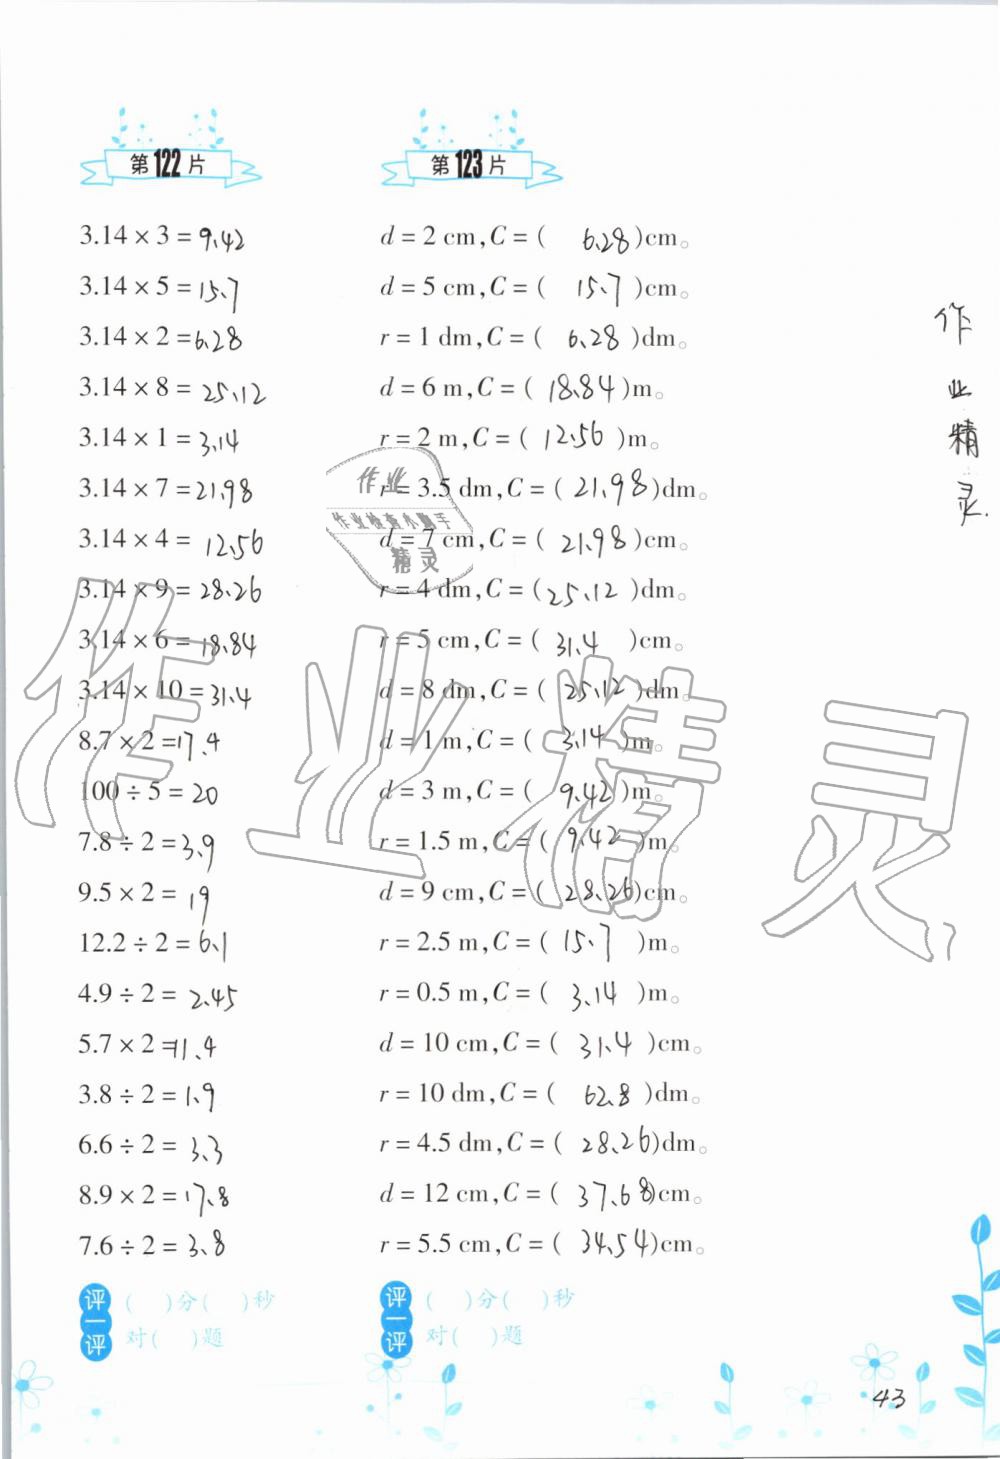 第122片
3.14 × 3 = 9.42
3.14 × 5 = 15.7
3.14 × 2 = 6.28
3.14 × 8 = 25.12
3.14 × 1 = 3.14
3.14 × 7 = 21.98
3.14 × 4 = 12.56
3.14 × 9 = 28.26
3.14 × 6 = 18.84
3.14 × 10 = 31.4
8.7 × 2 = 17.4
100 ÷ 5 = 20
7.8 ÷ 2 = 3.9
9.5 × 2 = 19
12.2 ÷ 2 = 6.1
4.9 ÷ 2 = 2.45
5.7 × 2 = 11.4
3.8 ÷ 2 = 1.9
6.6 ÷ 2 = 3.3
8.9 × 2 = 17.8
7.6 ÷ 2 = 3.8
评一评
( )分( )秒
对( )题
第123片
d = 2 cm, C = ( 6.28 )cm。
d = 5 cm, C = ( 15.7 )cm。
r = 1 dm, C = ( 6.28 )dm。
d = 6 m, C = ( 18.84 )m。
r = 2 m, C = ( 12.56 )m。
r = 3.5 dm, C = ( 21.98 )dm。
d = 7 cm, C = ( 21.98 )cm。
r = 4 dm, C = ( 25.12 )dm。
r = 5 cm, C = ( 31.4 )cm。
d = 8 dm, C = ( 25.12 )dm。
d = 1 m, C = ( 3.14 )m。
d = 3 m, C = ( 9.42 )m。
r = 1.5 m, C = ( 9.42 )m。
d = 9 cm, C = ( 28.26 )cm。
r = 2.5 m, C = ( 15.7 )m。
r = 0.5 m, C = ( 3.14 )m。
d = 10 cm, C = ( 31.4 )cm。
r = 10 dm, C = ( 62.8 )dm。
r = 4.5 dm, C = ( 28.26 )dm。
d = 12 cm, C = ( 37.68 )cm。
r = 5.5 cm, C = ( 34.54 )cm。
评一评
( )分( )秒
对( )题
作业精灵
作业
作业检查小助手
精灵
作业精灵
43